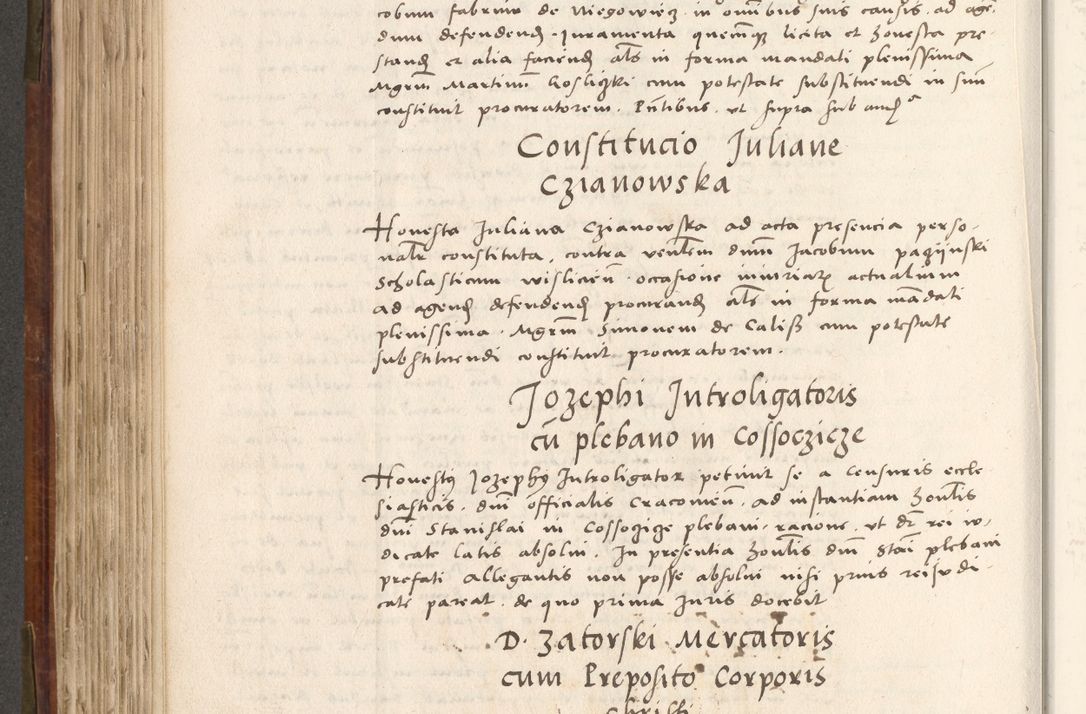 cobum fabrum de Niegowiecz in omībus suis causis ad agē
dum defendend Iuramenta quecūq licita et honesta pre
standū et alia faciend als in forma mandati plenissima
Mgrm Martinū Goslicski cum potestate substituendi in suū
constituit procuratorem. Pntibus ut supra sub
Constitucio Iuliane
Czianowska
Honesta Juliana Czianowska ad acta presencia perso-
nalr constituta, contra venlem dnm Jacobum paqijnski
scholasticum wislicień occasione iniuriarū actualium
ad agend defendend procurand als in forma mādati
plenissima Mgrm Simonem de Calis cum potestate
substituendi constituit procuratorem.
Jozephi Introligatoris
cū plebano in Cossoczicze
Honestq Jozephq Introligator petiuit se a Censuris eccle
siasticis dni officialis Cracouień. ad instantiam honlis
dni Stanislai in Cossoczicze plebani racione ut dr rei iu-
dicate latis absolui. In presentia honlis dni Stāi plebani
prefati allegantis non posse absolui nisi prius rei iudi-
cate pareat de quo prima Iuris docebit
D. Zatorski Mercatoris
cum Preposito Corporis
christi